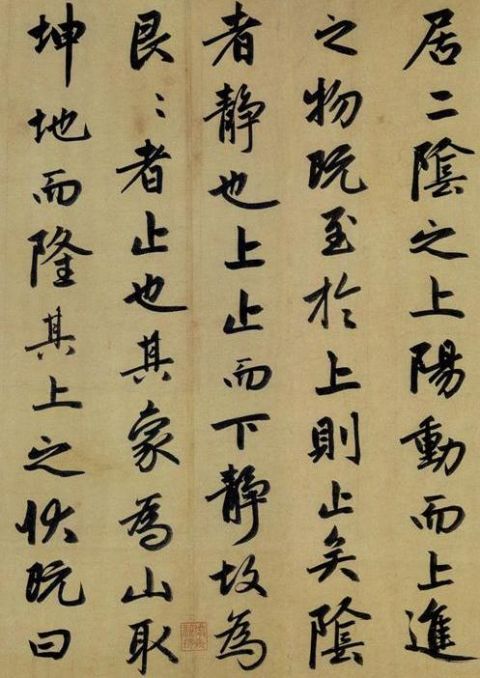 居二陰之上陽動而上進
之物既至於上則止矣陰
者静也上止而下静故為
艮〻者止也其象為山取
坤地而隆其上之状既曰